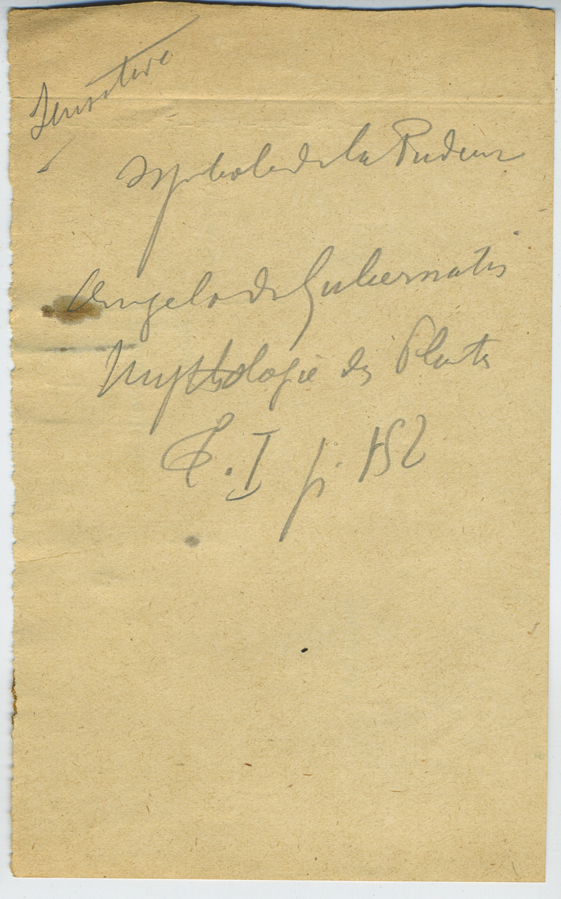 Sensitive
Symbole de la Pudeur
Angelo de Gubernatis
Mythologie des Plantes
T. I p. 152